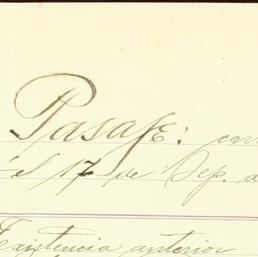 Pasaje:
el 17 de Sep.
Existencia anterior